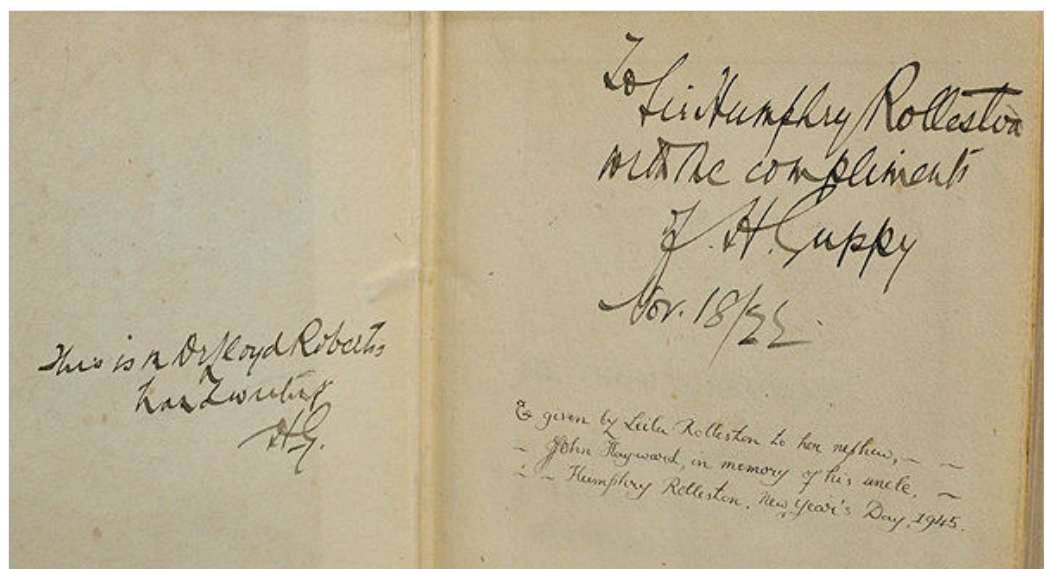 This is in Dr Lloyd Roberts
handwriting
H.G.
To
Sir Humphry Rolleston
with the compliments
of H. Guppy
Nov. 18/22
& given by Leila Rolleston to her nephew, – –
– John Hayward, in memory of his uncle, –
– – Humphry Rolleston, New Year's Day, 1945.